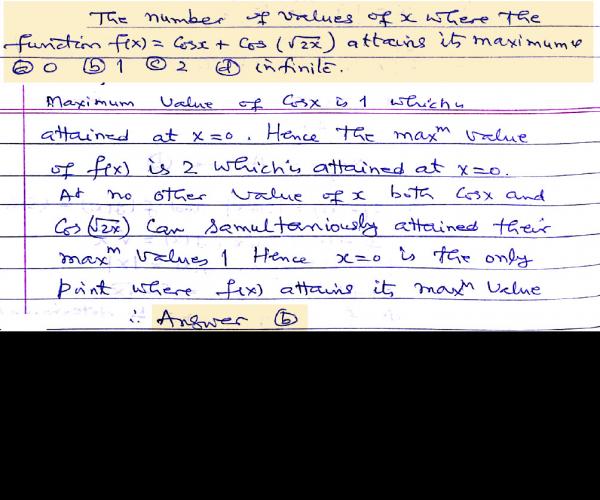 The number of values of x where the
function f(x) = Cosx + Cos (√2x) attains its maximum
ⓐ 0 ⓑ 1 ⓒ 2 ⓓ infinite.
Maximum Value of Cosx is 1 which is
attained at x=0. Hence The maxᵐ value
of f(x) is 2 which is attained at x=0.
At no other value of x both Cosx and
Cos (√2x) Can Samultaniously attained their
maxᵐ values 1 Hence x=0 is the only
point where f(x) attains its maxᵐ Value
∴ Answer ⓑ